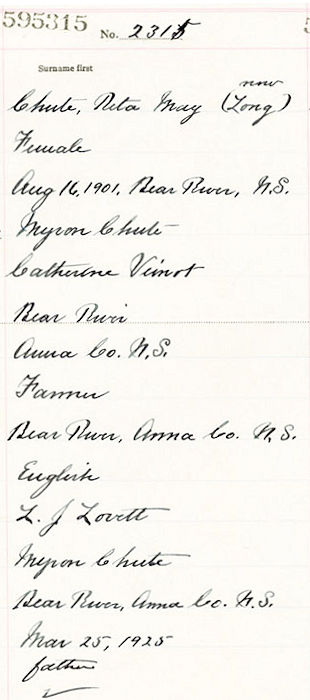 595315
No. 2315
Surname first
now
Chute, Rita May (Long)
Female
Aug 16, 1901, Bear River, N.S.
Myron Chute
Catherine Vimot
Bear River
Anna Co. N.S.
Farmer
Bear River, Anna Co. N.S.
English
L. J Lovett
Myron Chute
Bear River, Anna Co. N.S.
Mar 25, 1925
father